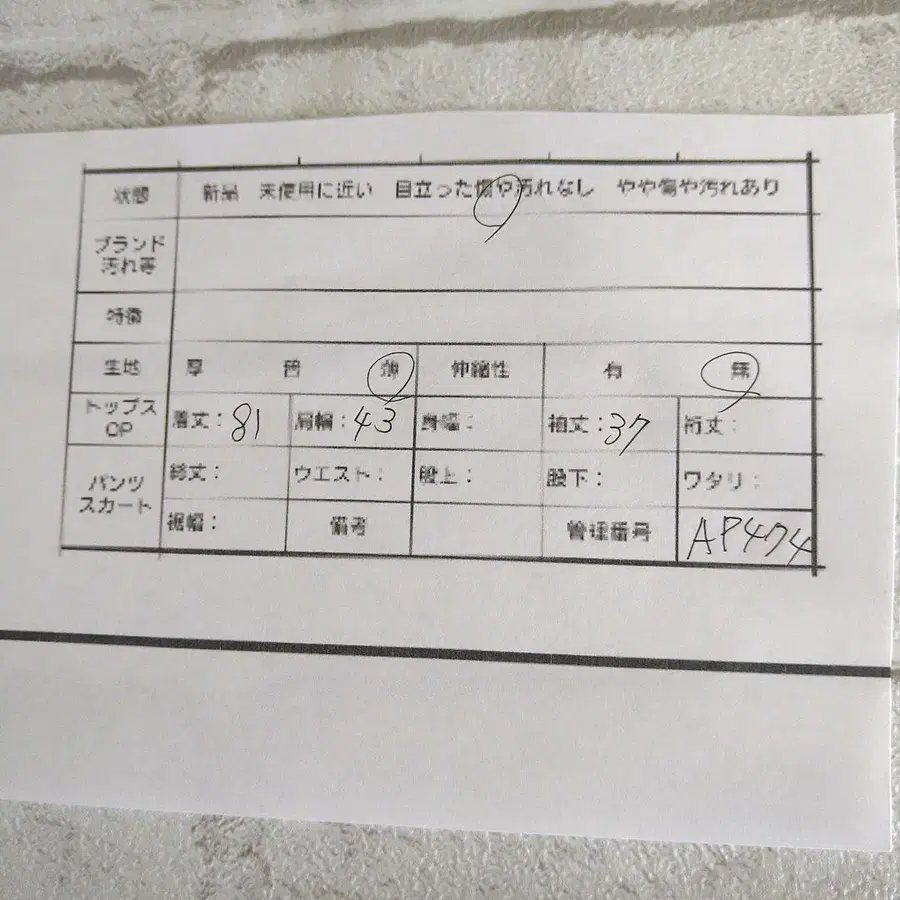 状態 新品 未使用に近い 目立った傷や汚れなし やや傷や汚れあり
ブランド
汚れ等
特徴
生地 厚 普 薄 伸縮性 有 無
トップス
OP
着丈：81 肩幅：43 身幅： 袖丈：37 裄丈：
パンツ
スカート
総丈： ウエスト： 股上： 股下： ワタリ：
裾幅： 備考 管理番号 AP474